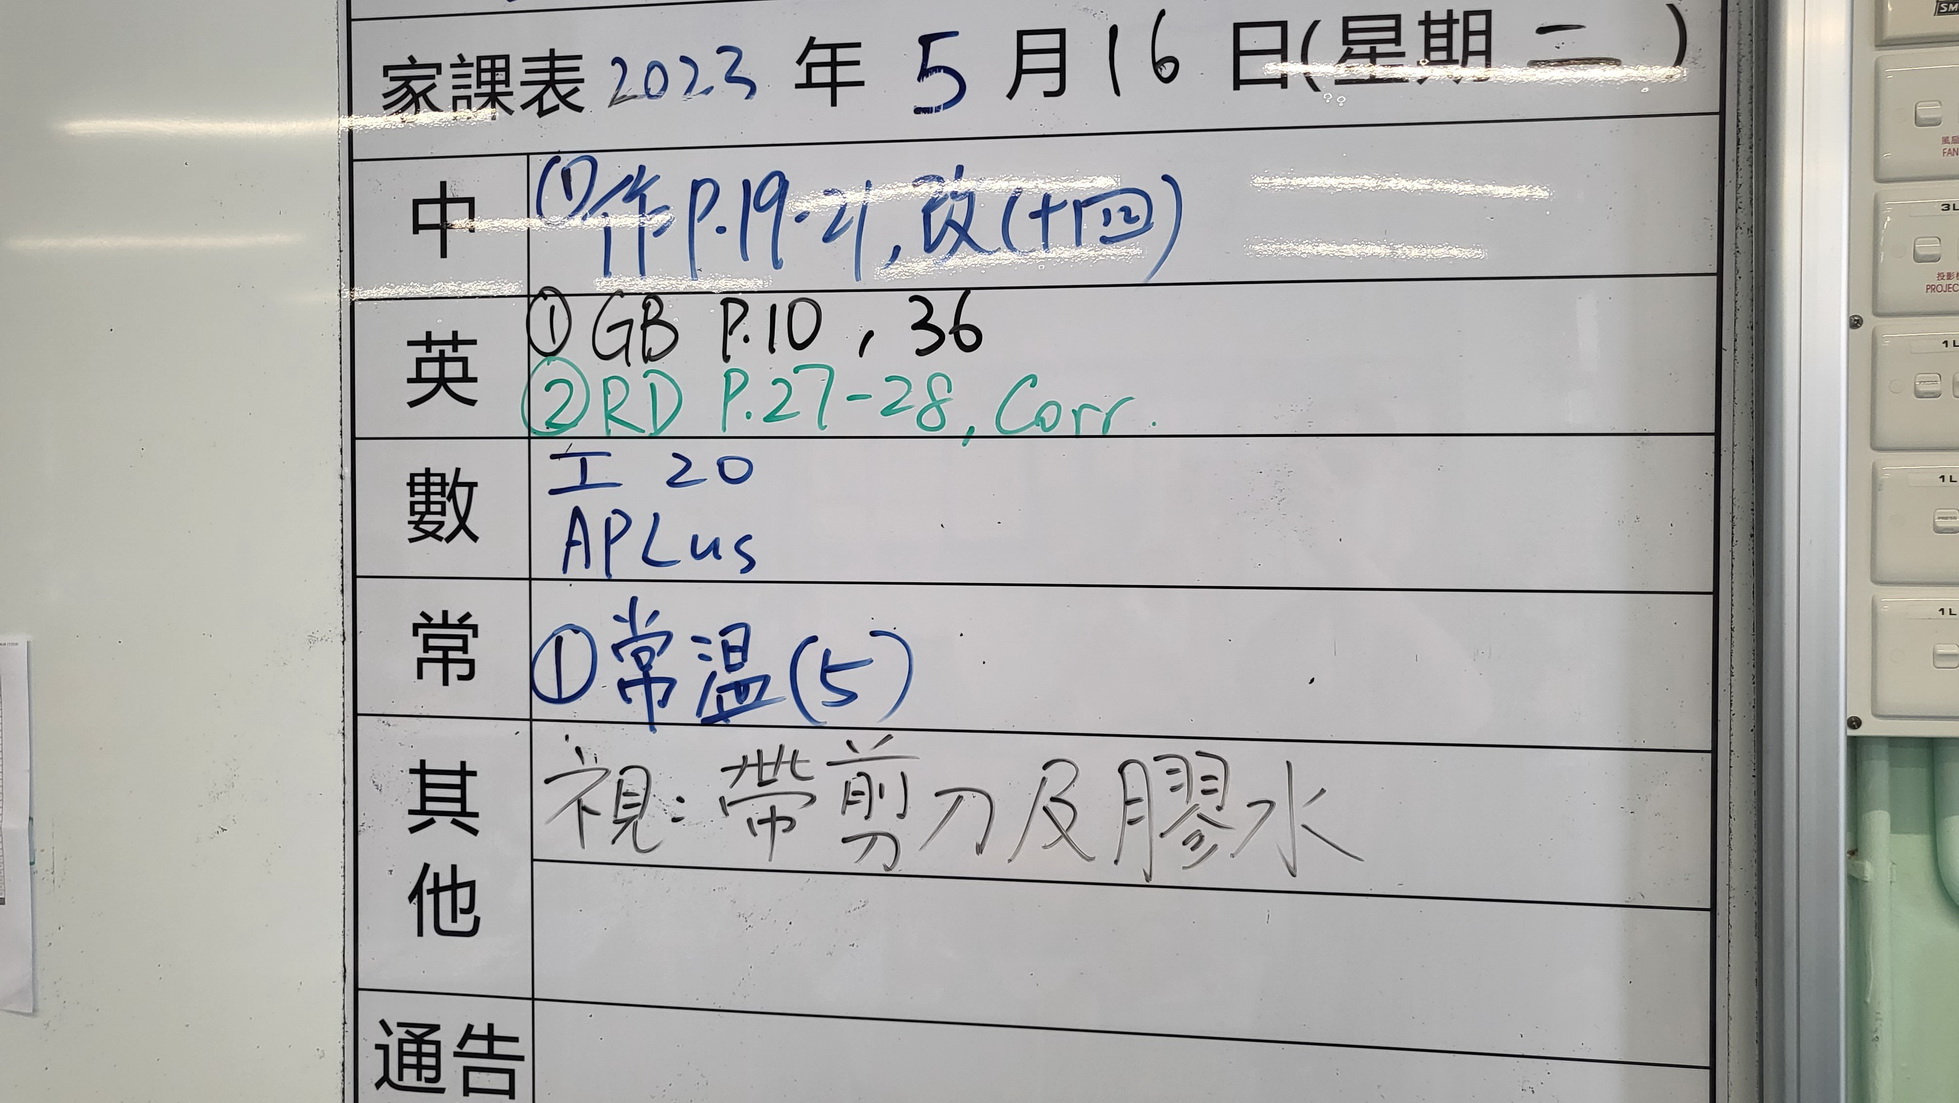 家課表 2023 年 5 月 16 日(星期 二 )
中 ① 作 P.19-21, 改(十四)
英 ① GB P.10 , 36
② RD P.27-28, Corr.
數 工 20
APLus
常 ① 常温(5)
其他 視：帶剪刀及膠水
通告
FAN
3L
PROJEC
1L
1L
1L